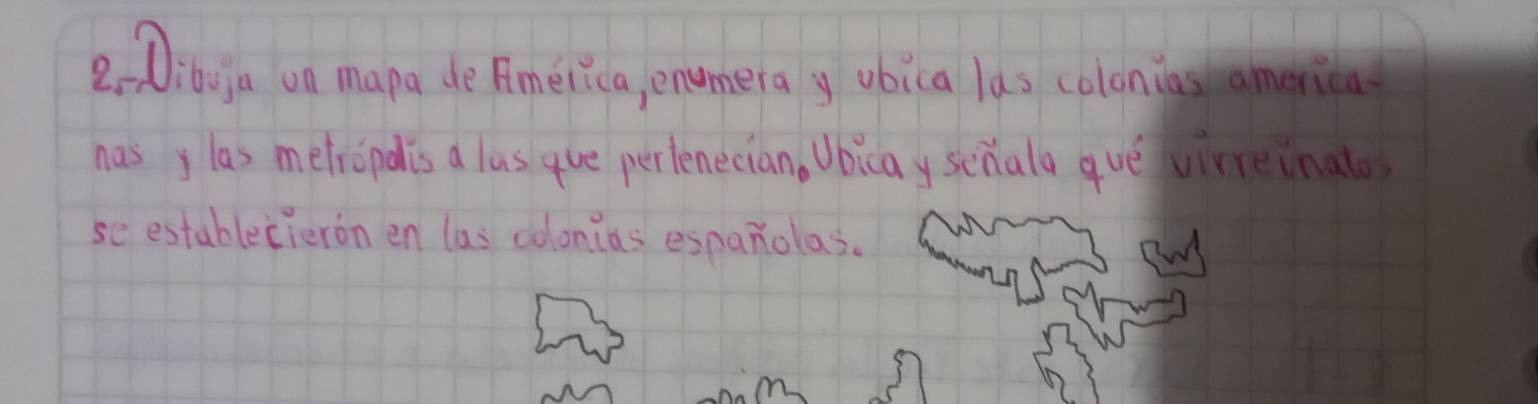 2.-Dibuja un mapa de América, enumera y ubica las colonias america-
nas y las metrópolis a las que pertenecian. Ubica y señala qué virreinatos
se establecierón en las colonias españolas.